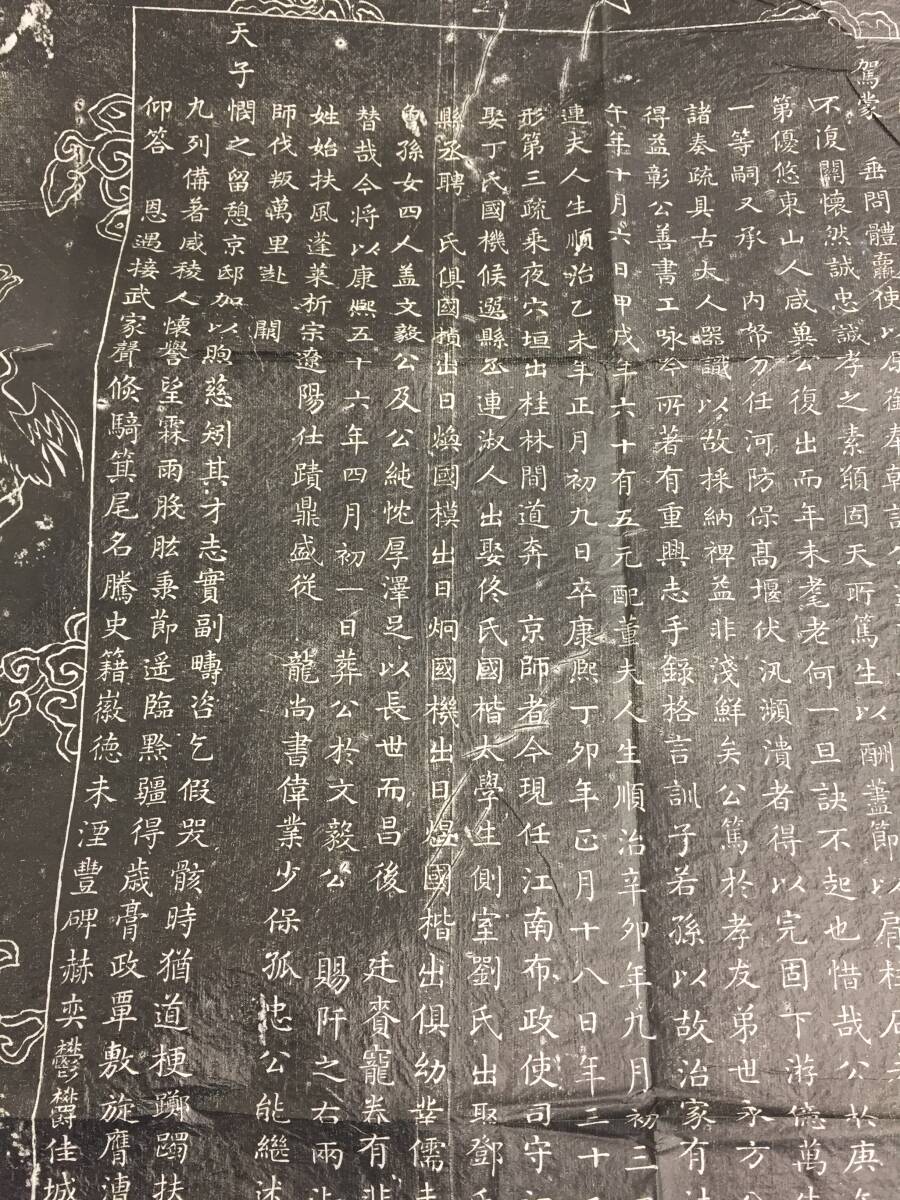 駕蒙　垂問體羸使以原衘奉朝請
不復關懷然誠忠誠孝之素頤固天所篤生以酬藎節以肩柱石
第優悠東山人咸兾公復出而年未耄老何一旦訣不起也惜哉公於庚
一等嗣又承　內帑分任河防保高堰伏汛瀕潰者得以完固下游億萬生
諸奏疏具古大人器識以故採納裨益非淺鮮矣公篤於孝友弟世永方
得益彰公善書工咏吟所著有重興志手錄格言訓子若孫以故治家有法
午年十月六日甲戌年六十有五元配董夫人生順治辛卯年九月初三
連夫人生順治乙未年正月初九日卒康熈丁卯年正月十八日年三十
形第三疏乘夜穴垣出桂林間道奔　京師者今現任江南布政使司守
娶丁氏國機候選縣丞連淑人出娶佟氏國楷太學生側室劉氏出娶鄧氏
縣丞聘　氏俱國楨出曰煥國模出曰炯國機出曰熀國楷出俱幼輩儒
魯孫女四人盖文毅公及公純忱厚澤足以長世而昌後　廷賚寵眷有非
替哉今將以康熈五十六年四月初一日葬公於文毅公　賜阡之右兩
姓始扶風蓬萊析宗遼陽仕蹟鼎盛從　龍尚書偉業少保孤忠公能繼述
師伐叛萬里赴　闕
天子憫之留憩京邸加以煦慈矧其才志實副疇咨乞假哭骸時猶道梗躑躅扶
九列備著咸稜人懷譽望霖雨股肱秉節遥臨黔疆得歲膏政覃敷旋膺漕
仰答　恩遇接武家聲倐騎箕尾名騰史籍徽德未湮豐碑赫奕鬱鬱佳城